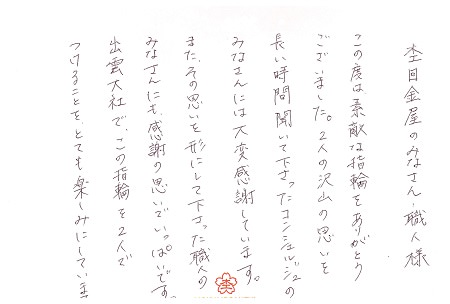 杢目金屋のみなさん、職人様
この度は、素敵な指輪をありがとう
ございました。2人の沢山の思いを
長い時間聞いて下さったコンシェルジュの
みなさんには大変感謝しています。
また、その思いを形にして下さった職人の
みなさんにも、感謝の思いでいっぱいです。
出雲大社で、この指輪を2人で
つけることを、とても楽しみにしています